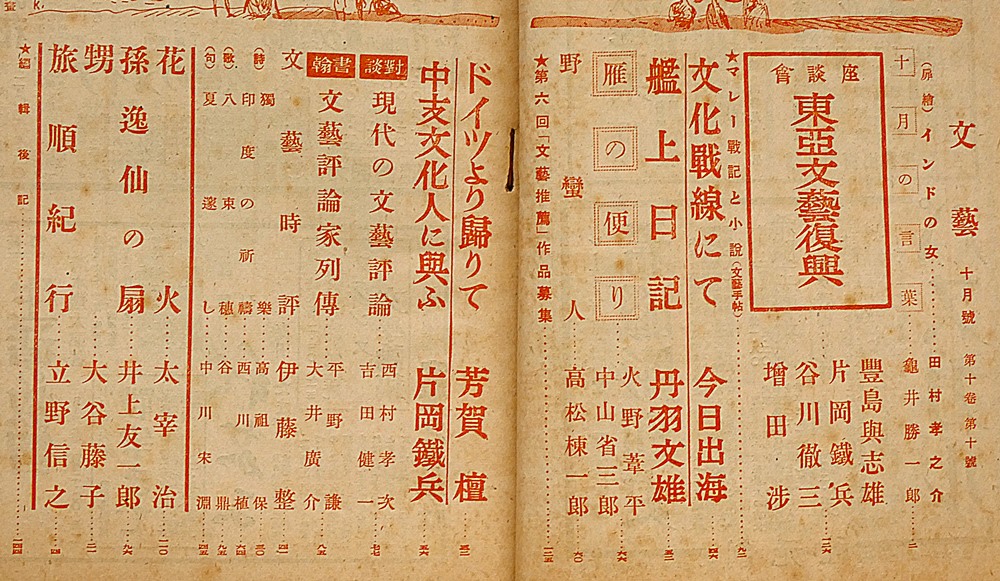 文藝 十月號 第十卷 第十號
(扉繪)インドの女 田村孝之介
十月の言葉 龜井勝一郎 二
座談會 東亞文藝復興
豐島與志雄
片岡鐵兵
谷川徹三
增田涉
★マレー戰記と小說(文藝手帖)
文化戰線にて 今日出海
艦上日記 丹羽文雄
雁の便り
火野葦平
中山省三郎
野蠻人 高松棟一郎 六〇
★第六回「文藝推薦」作品募集
ドイツより歸りて 芳賀檀
中支文化人に與ふ 片岡鐵兵
對談 現代の文藝評論
西村孝次
吉田健一
書翰 文藝評論家列傳
平野謙
大井廣介
文藝時評 伊藤整
(詩)獨樂 高祖保
印度の祈禱 西川
(歌)八束穗 谷鼎
(句)夏邃し 中川宋淵
花火 太宰治
孫逸仙の扇 井上友一郎
甥 大谷藤子
旅順紀行 立野信之
★編輯後記